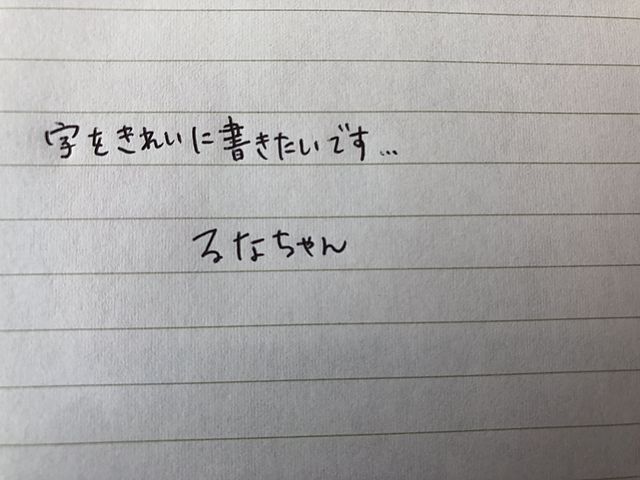 字をきれいに書きたいです...
るなちゃん